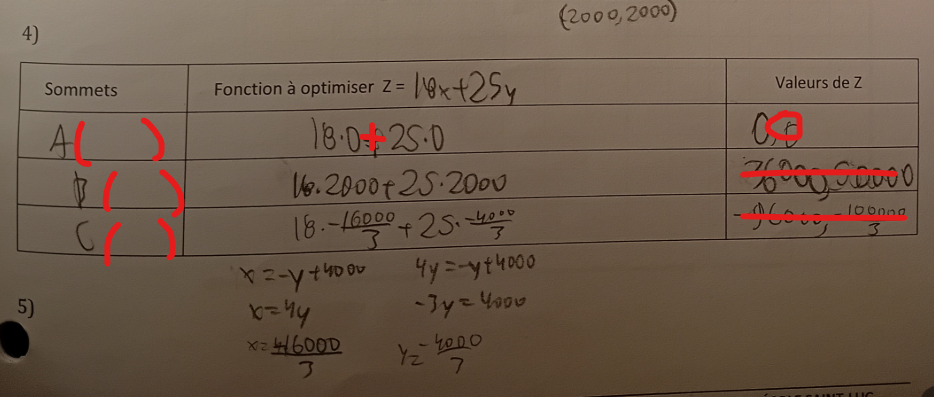 (2000,2000)
4)
Sommets Fonction à optimiser Z = 18x+25y Valeurs de Z
A ( ) 18·0+25·0 0,0
B ( ) 18·2000+25·2000 36000,50000
C ( ) 18·-16000/3 + 25·-4000/3 -96000,-100000/3
x=-y+4000 4y=-y+4000
5) x=4y -3y=4000
x=-16000/3 y=-4000/3